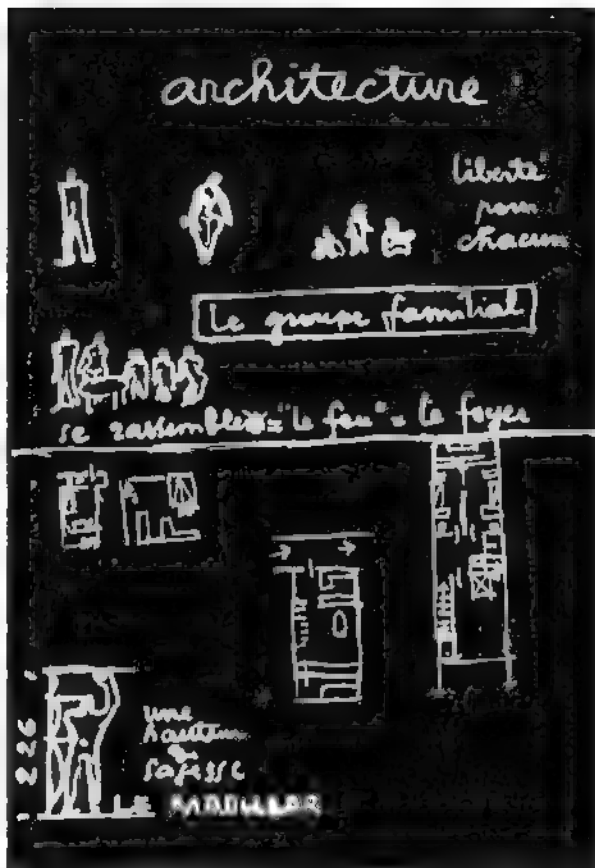 architecture
liberté
pour
chacun
le groupe familial
se rassembler = "le feu" = le foyer
226
une
hauteur
LE MODULOR